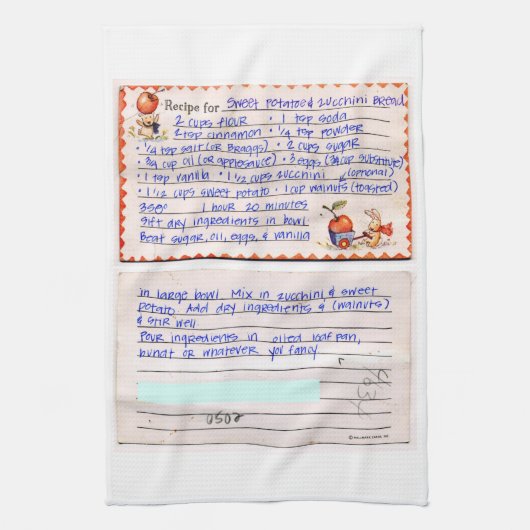 Recipe for Sweet Potatoe & Zucchini Bread
2 cups flour • 1 tsp soda
2 tsp cinnamon • 1/4 tsp powder
• 1/4 tsp salt (or Braggs) • 2 cups sugar
• 3/4 cup oil (or applesauce) • 3 eggs (3/4 cup substitute)
• 1 tsp vanilla • 1 1/2 cups zucchini (optional)
• 1 1/2 cups sweet potato • 1 cup walnuts (toasted)
350° 1 hour 20 minutes
Sift dry ingredients in bowl.
Beat sugar, oil, eggs, & vanilla
in large bowl. Mix in zucchini, & sweet
potato. Add dry ingredients & (walnuts)
& stir well.
Pour ingredients in oiled loaf pan,
bundt or whatever you fancy.
0502
© HALLMARK CARDS, INC